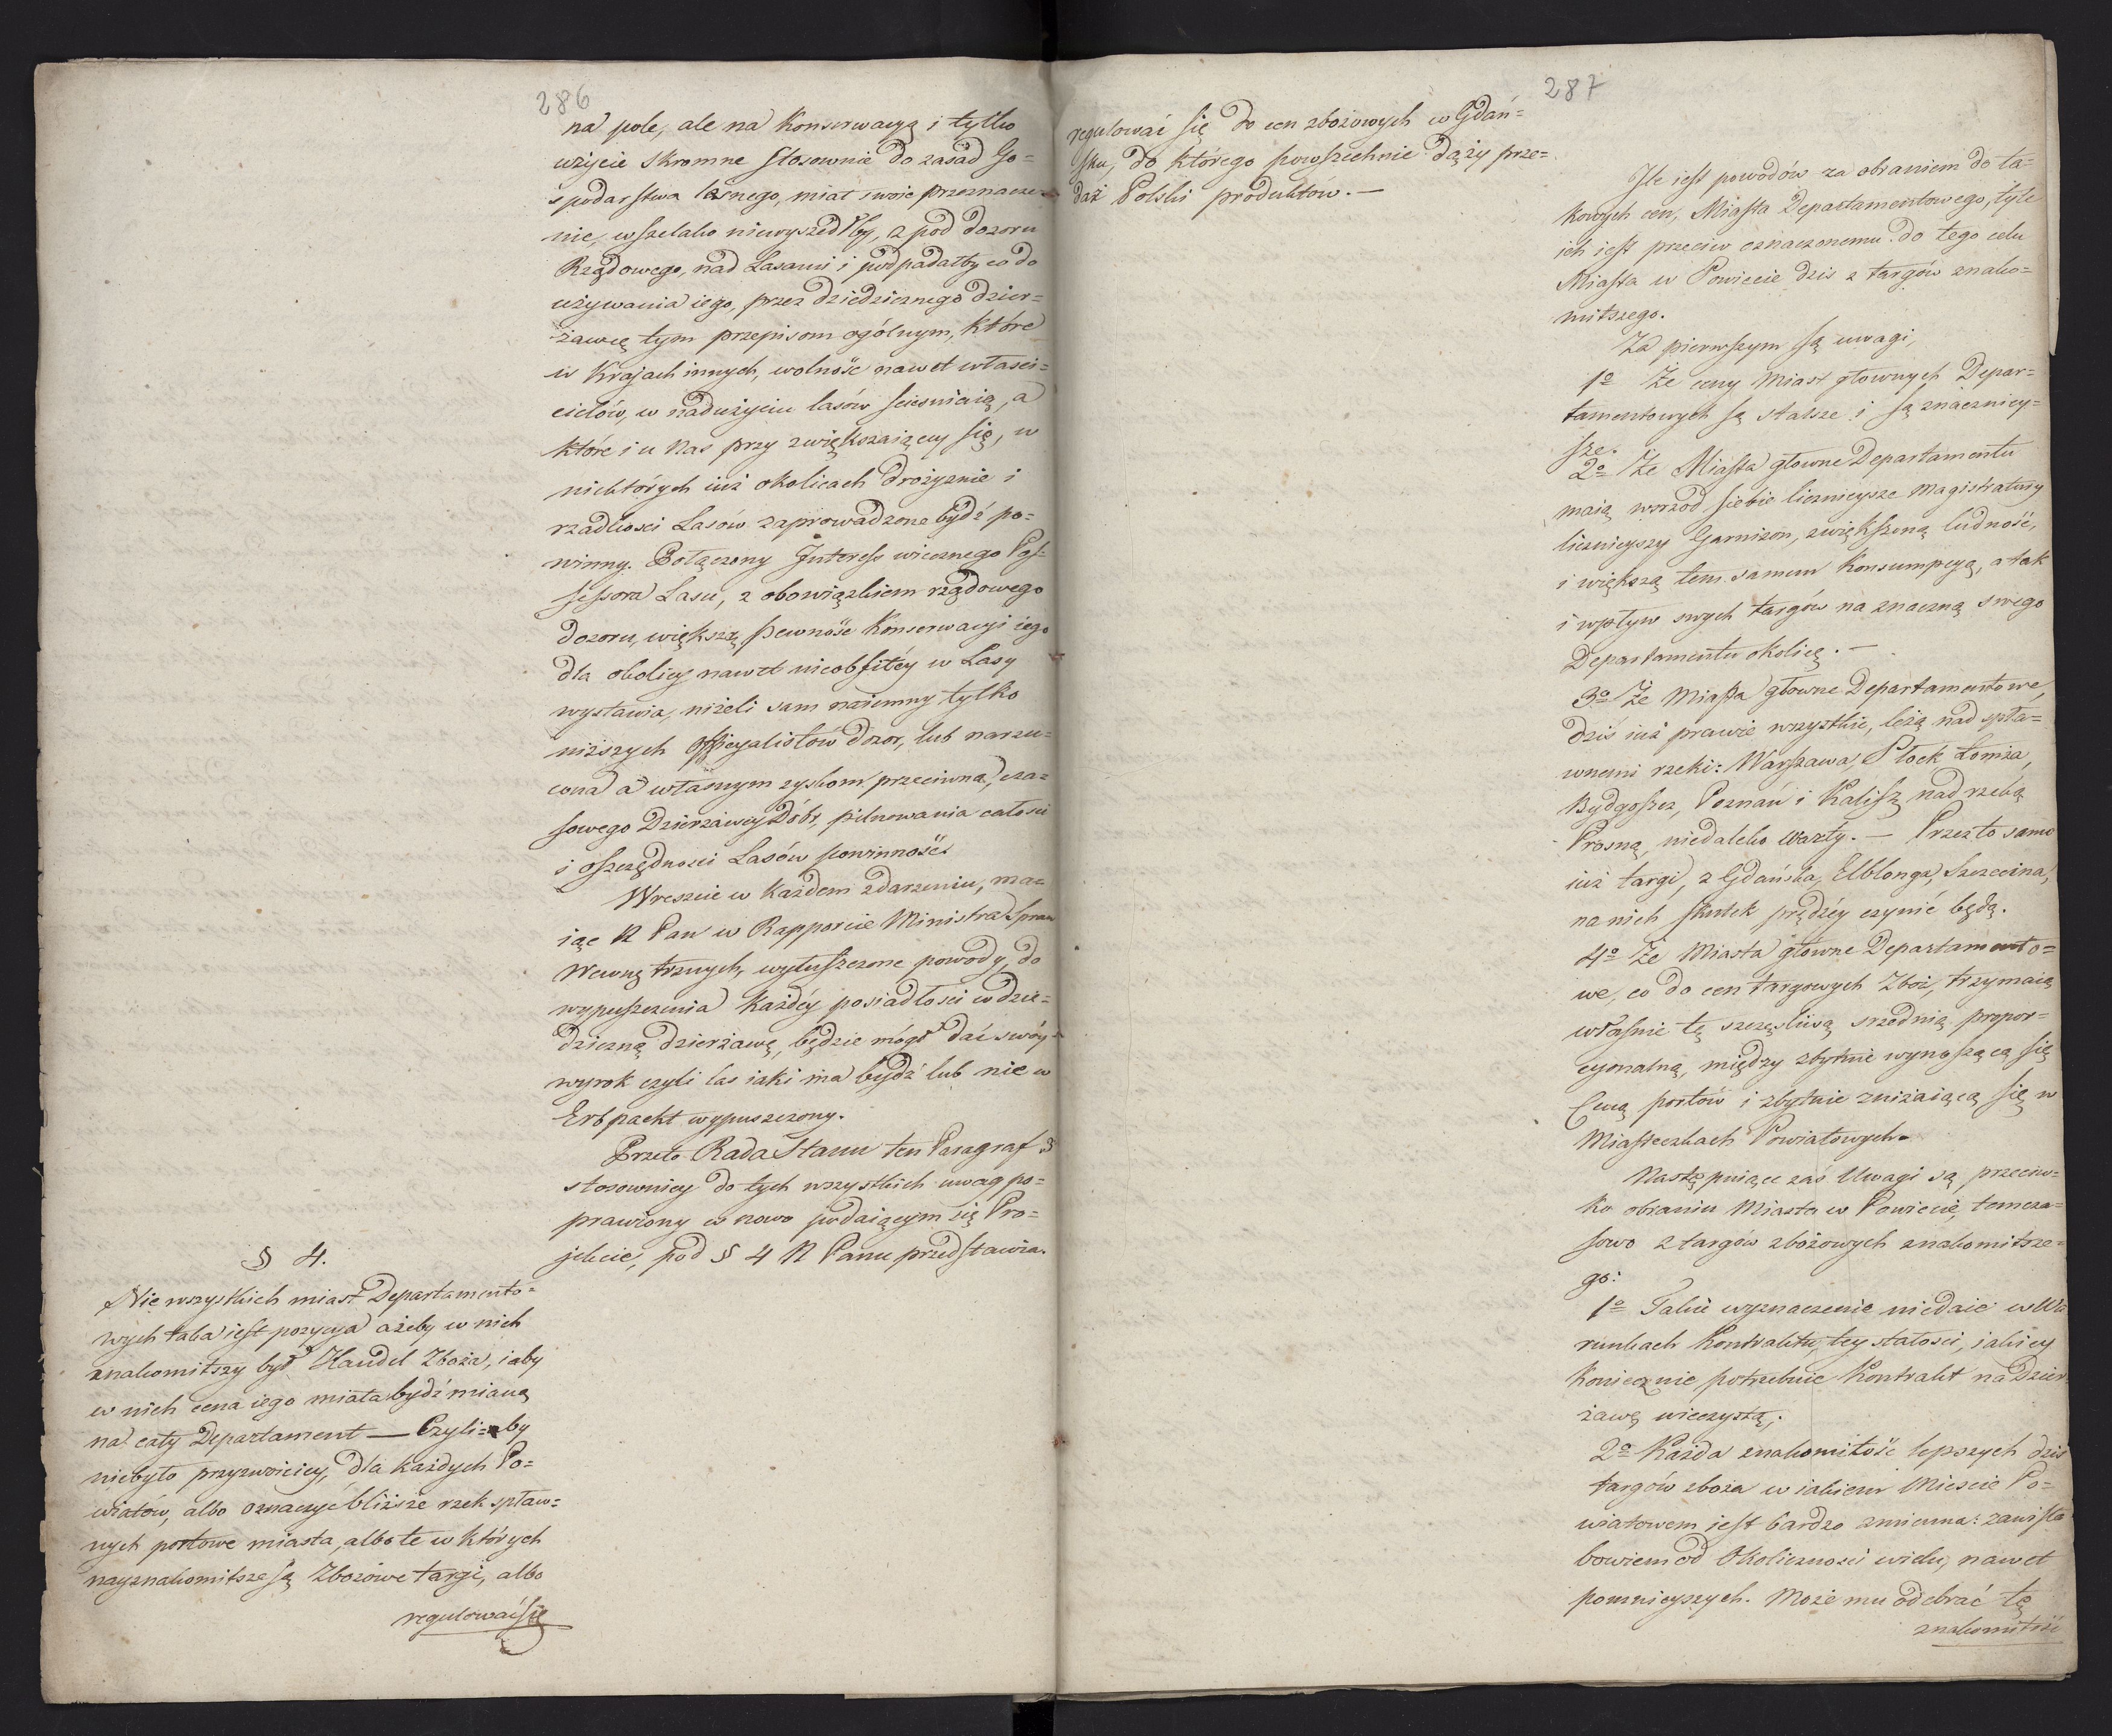 286
na pole, ale na Konserwacyą i tylko
użycie skromne stosownie do zasad Go=
spodarstwa lesnego, miał swoie przeznacze=
nie, wszelako niewyszedłby, z pod dozoru
Rządowego, nad Lasami i podpadałby co do
używania iego, przez dziedzicznego dzier=
żawcę tym przepisom ogólnym, które
w Krajach innych, wolność nawet właści=
cielów, w nadużyciu lasów scieśniaią, a
które i u Nas przy zwiększaiącey się, w
niektórych iuż okolicach drożyznie i
rzadkosci Lasów zaprowadzone bydź po=
winny. Połączony Interess wiecznego Pos=
sessora Lasu, z obowiązkiem rządowego
dozoru, większą pewność Konserwacyi iego
dla okolicy nawet nieobfitéy w Lasy
wystawia, niżeli sam naiemny tylko
niższych Officyalistów dozor, lub narzu=
cona a własnym zyskom przeciwna, cza=
sowego Dzierżawcy Dóbr, pilnowania całosci
i oszczędnosci Lasów powinność.
Wreszcie w każdem zdarzeniu, ma=
iąc N Pan w Rapporcie Ministra Spraw
Wewnętrznych, wyłuszczone powody, do
wypuszczenia każdéy posiadłosci w dzie=
dziczną dzierżawę, będzie mógł dać swóy
wyrok czyli las iaki ma bydź lub nie w
Erbpacht wypuszczony.
Przeto Rada Stanu ten Paragraf 3
stosowniey do tych wszystkich uwag po=
prawiony w nowo podaiącym się Pro=
jekcie, pod § 4 N Panu przedstawia.
§ 4.
Nie wszystkich miast Departamento=
wych taka iest pozycya ażeby w nich
znakomitszy był Handel Zboża, i aby
w nich cena iego miała bydź mianą
na cały Departament — Czyli=by
niebyło przyzwoiciey, dla każdych Po=
wiatów, albo oznaczyć bliższe rzek spław=
nych portowe miasta, albo te w których
nayznakomitsze są Zbożowe targi, albo
regulować się
287
regulować się do cen zbożowych w Gdań=
sku, do którego powszechnie dąży prze=
daż Polski produktów. —
Ile iest powodów za obraniem do ta=
kowych cen, Miasta Departamentowego, tyle
ich iest przeciw oznaczonemu do tego celu
Miasta w Powiecie dzis z targów znako=
mitszego.
Za pierwszym są uwagi,
1º Że ceny Miast głownych Depar=
tamentowych są stalsze i są znacznieỳ=
sze.
2º Że Miasta głowne Departamentu
maią wsrzod siebie licznieysze Magistratury
licznieyszy Garnizon, zwiększoną ludność,
i większą tem samem Konsumpcyą, a tak
i wpływ swych targów na znaczną swego
Departamentu okolicę. —
3º Że Miasta głowne Departamentowe,
dziś iuż prawie wszystkie, leżą nad spła=
wnemi rzeki: Warszawa, Płock Łomża,
Bydgoszcz, Poznań i Kalisz nad rzeką
Prosną, niedaleko Warty. — Przez to samo
iuż targi, z Gdańska, Elblonga, Szczecina,
na nich skutek prędzéy czynić będą.
4º Że Miasta głowne Departamento=
we, co do cen targowych Zboż, trzymaią
własnie tę szczęśliwą srzednią propor=
cyonalną, między zbytnie wynoszącą się
Ceną portów i zbytnie zniżaiącą się w
Miasteczkach Powiatowych.
Następuiące zaś Uwagi są przeciw=
ko obraniu Miasta w Powiecie, tomcza=
sowo z targów zbożowych znakomitsze=
go:
1º Takie wyznaczenie niedaie w Wa
runkach Kontraktu, tey stałosci, iakiey
Koniecznie potrzebuie Kontrakt na Dzier
żawę wieczystą;
2º Każda znakomitość lepszych dziś
targów zboża w iakiem Miescie Po=
wiatowem iest bardzo zmienna: zawisła
bowiem od Okolicznosci wielu, nawet
pomnieyszych. Może mu odebrać tę
znakomitość